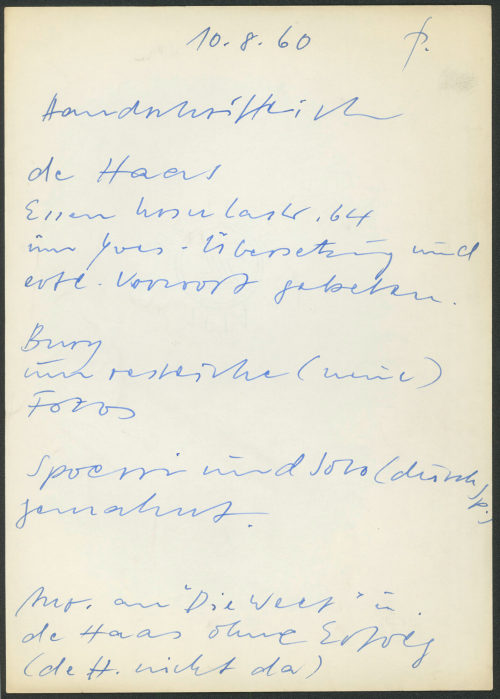 10.8.60 P.
Handschriftlich
de Haas
Essen Ursulastr. 64
um Yves-Übersetzung und
evtl. Vorwort gebeten.
Burg
um restliche (meine)
Fotos
Spoerri und Soto (durch Sp.)
gemahnt.
an "Die Welt" u.
de Haas ohne Erfolg
(de H. nicht da)